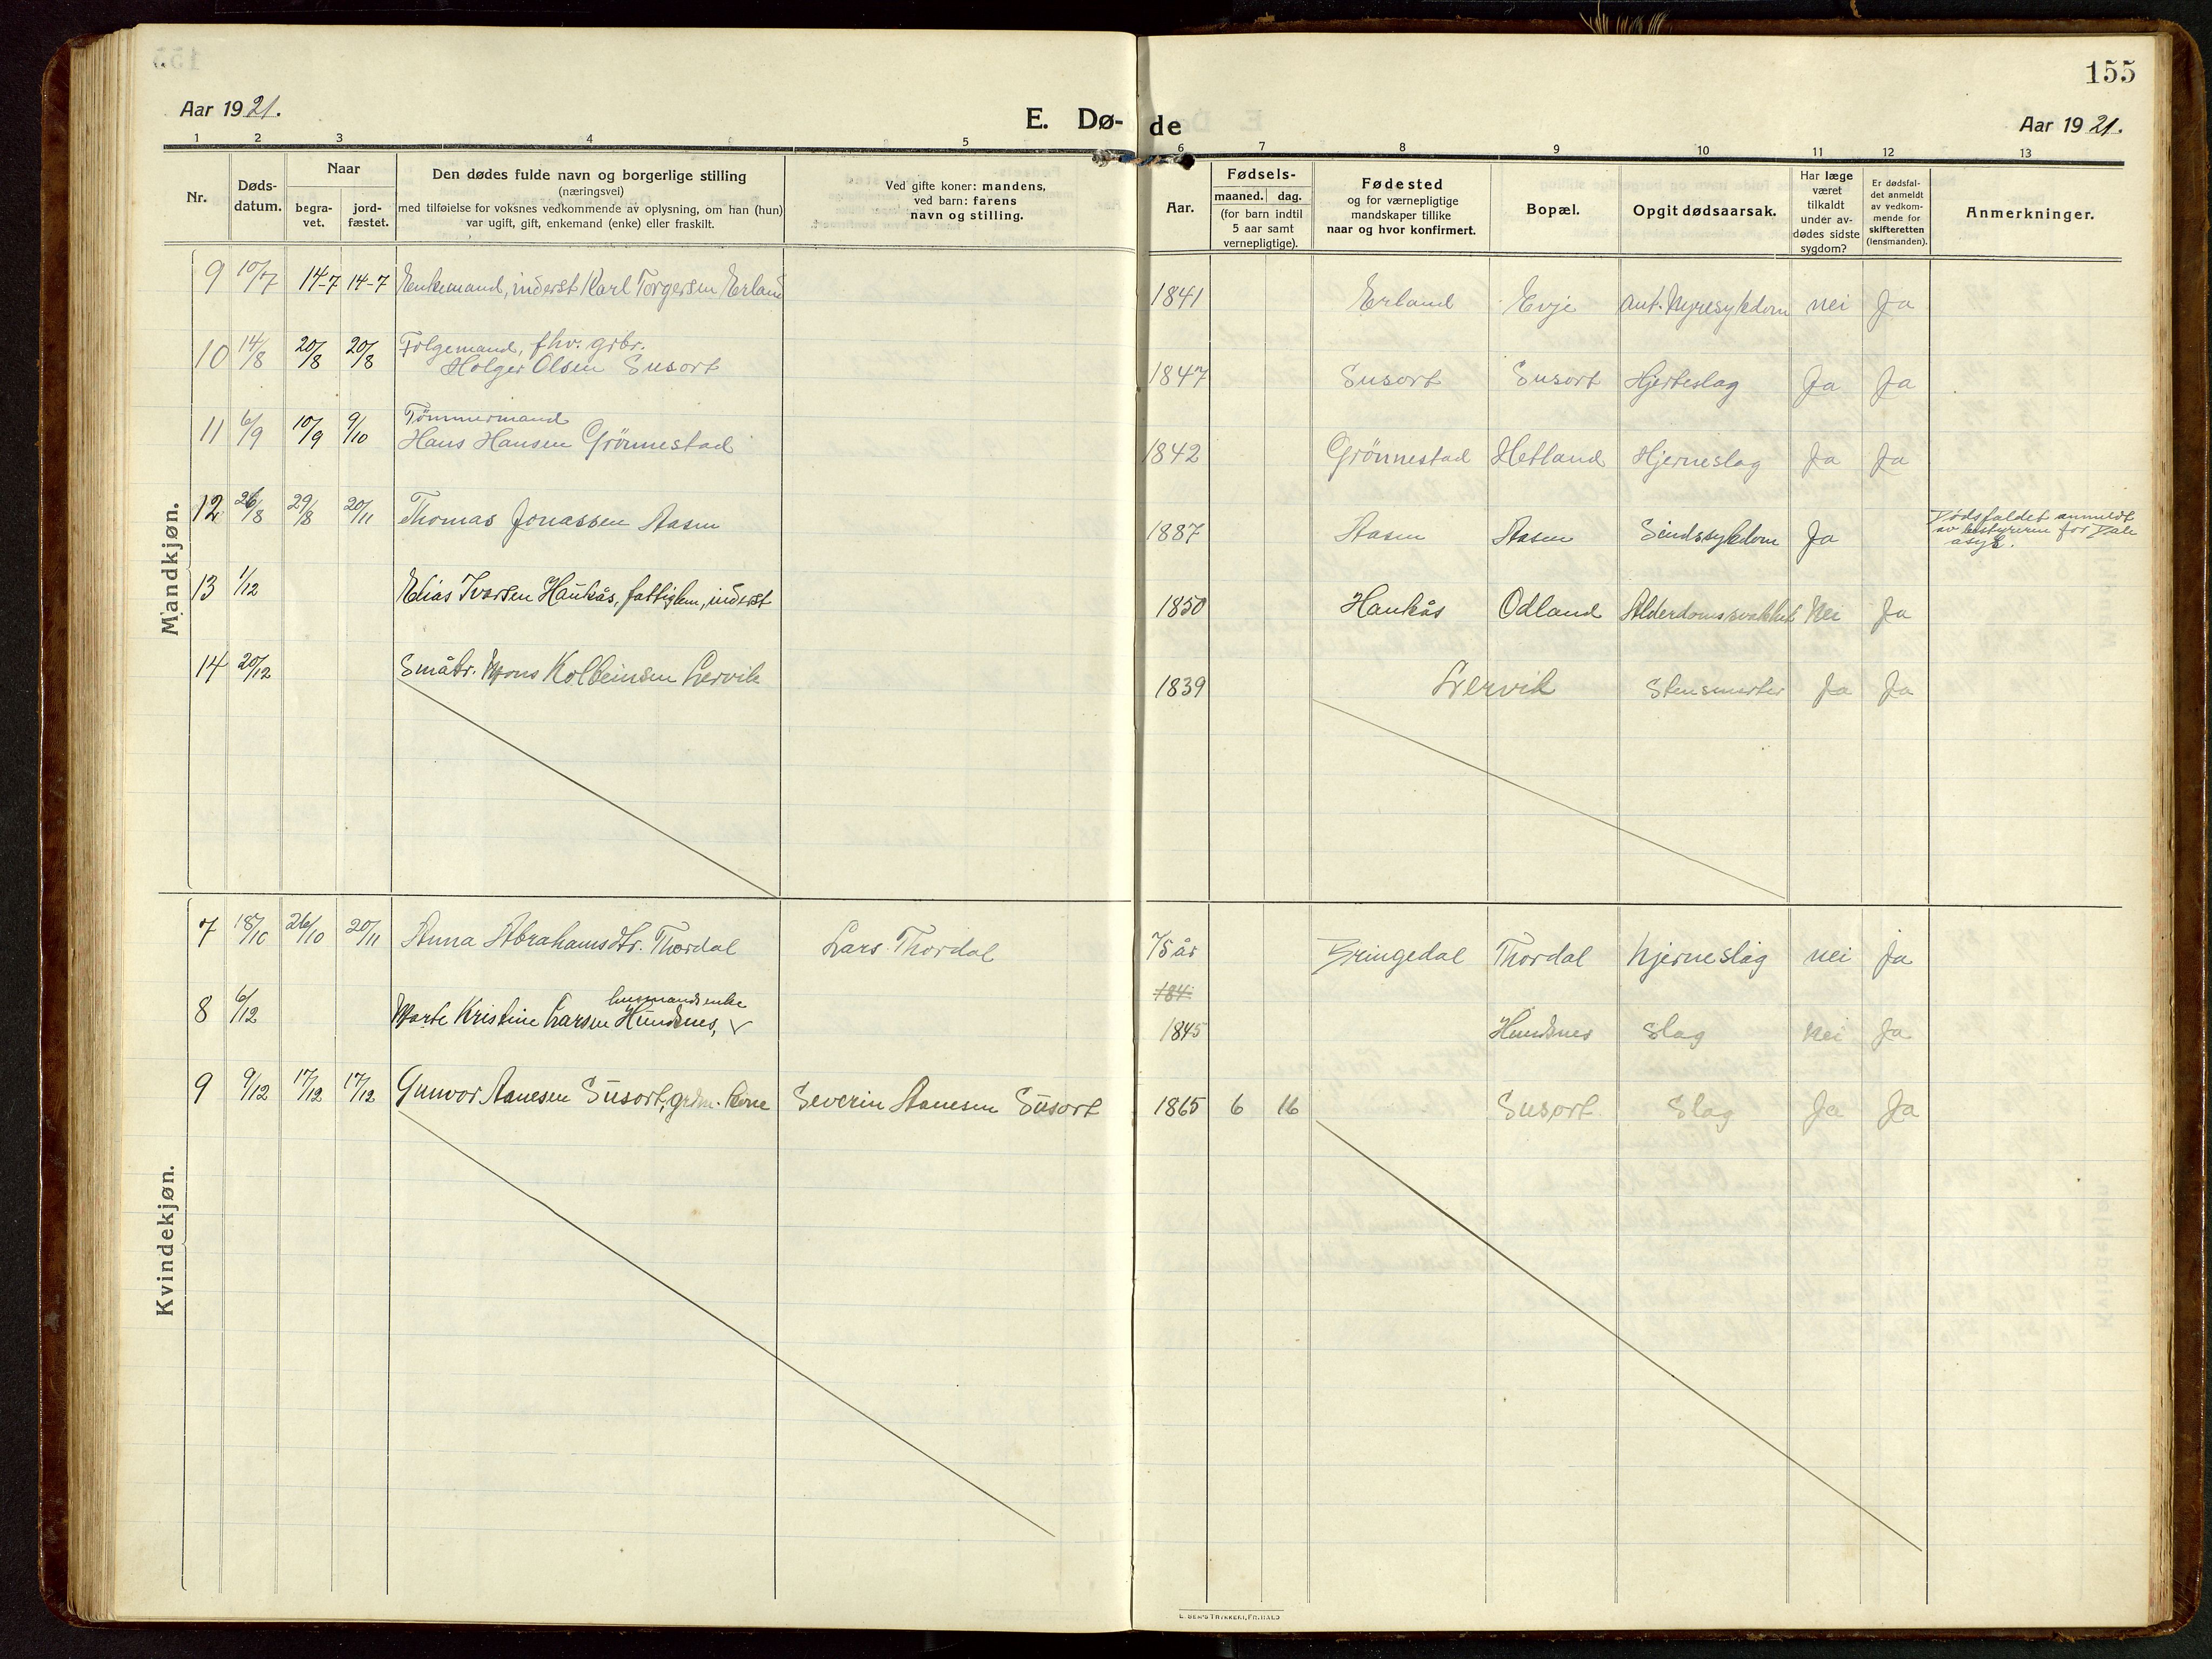 155
Aar 1921.
E. Dø-de
Aar 1921.
1 2 3 4 5 6 7 8 9 10 11 12 13
Nr.
Døds-
datum.
Naar
begra-
vet.
jord-
fæstet.
Den dødes fulde navn og borgerlige stilling
(næringsvei)
med tilføielse for voksnes vedkommende av oplysning, om han (hun)
var ugift, gift, enkemand (enke) eller fraskilt.
Ved gifte koner: mandens,
ved barn: farens
navn og stilling.
Aar.
Fødsels-
maaned. dag.
(for barn indtil
5 aar samt
vernepligtige).
Fødested
og for værnepligtige
mandskaper tillike
naar og hvor konfirmert.
Bopæl.
Opgit dødsaarsak.
Har læge
været
tilkaldt
under av-
dødes sidste
sygdom?
Er dødsfal-
det anmeldt
av vedkom-
mende for
skifteretten
(lensmanden).
Anmerkninger.
Mandkjøn.
9 10/7 14-7 14-7 Enkemand, inderst Karl Torgersen Erland 1841 Erland Evje ant. Nyresykdom nei Ja
10 14/8 20/8 20/8 Folgemand, fhv. grbr.
Holger Olsen Susort 1847 Susort Susort Hjerteslag Ja Ja
11 6/9 10/9 9/10 Tømmermand
Hans Hansen Grönnestad 1842 Grönnestad Hetland Hjerneslag Ja Ja
12 26/8 29/8 20/11 Thomas Jonassen Aasen 1887 Aasen Aasen Sindssykdom Ja Dødsfaldet anmeldt
av bestyreren for Dale
asyl.
13 1/12 Elias Ivarsen Haukås, fattiglem, inderst 1850 Haukås Odland Alderdomssvakhet Nei Ja
14 20/12 Småbr. Mons Kolbeinsen Lervik 1839 Lervik Stensmerter Ja Ja
Kvindekjøn.
7 18/10 26/10 20/11 Anna Abrahamsdtr. Thordal Lars Thordal 75 år Bringedal Thordal hjerneslag nei Ja
184
8 6/12 husmandsenke
Marte Kristine Larsen Hundsnes, 1845 Hundsnes Slag Nei Ja
9 9/12 17/12 17/12 Gunvor Aanesen Susort, grdm. kone Severin Aanesen Susort 1865 6 16 Susort Slag Ja Ja